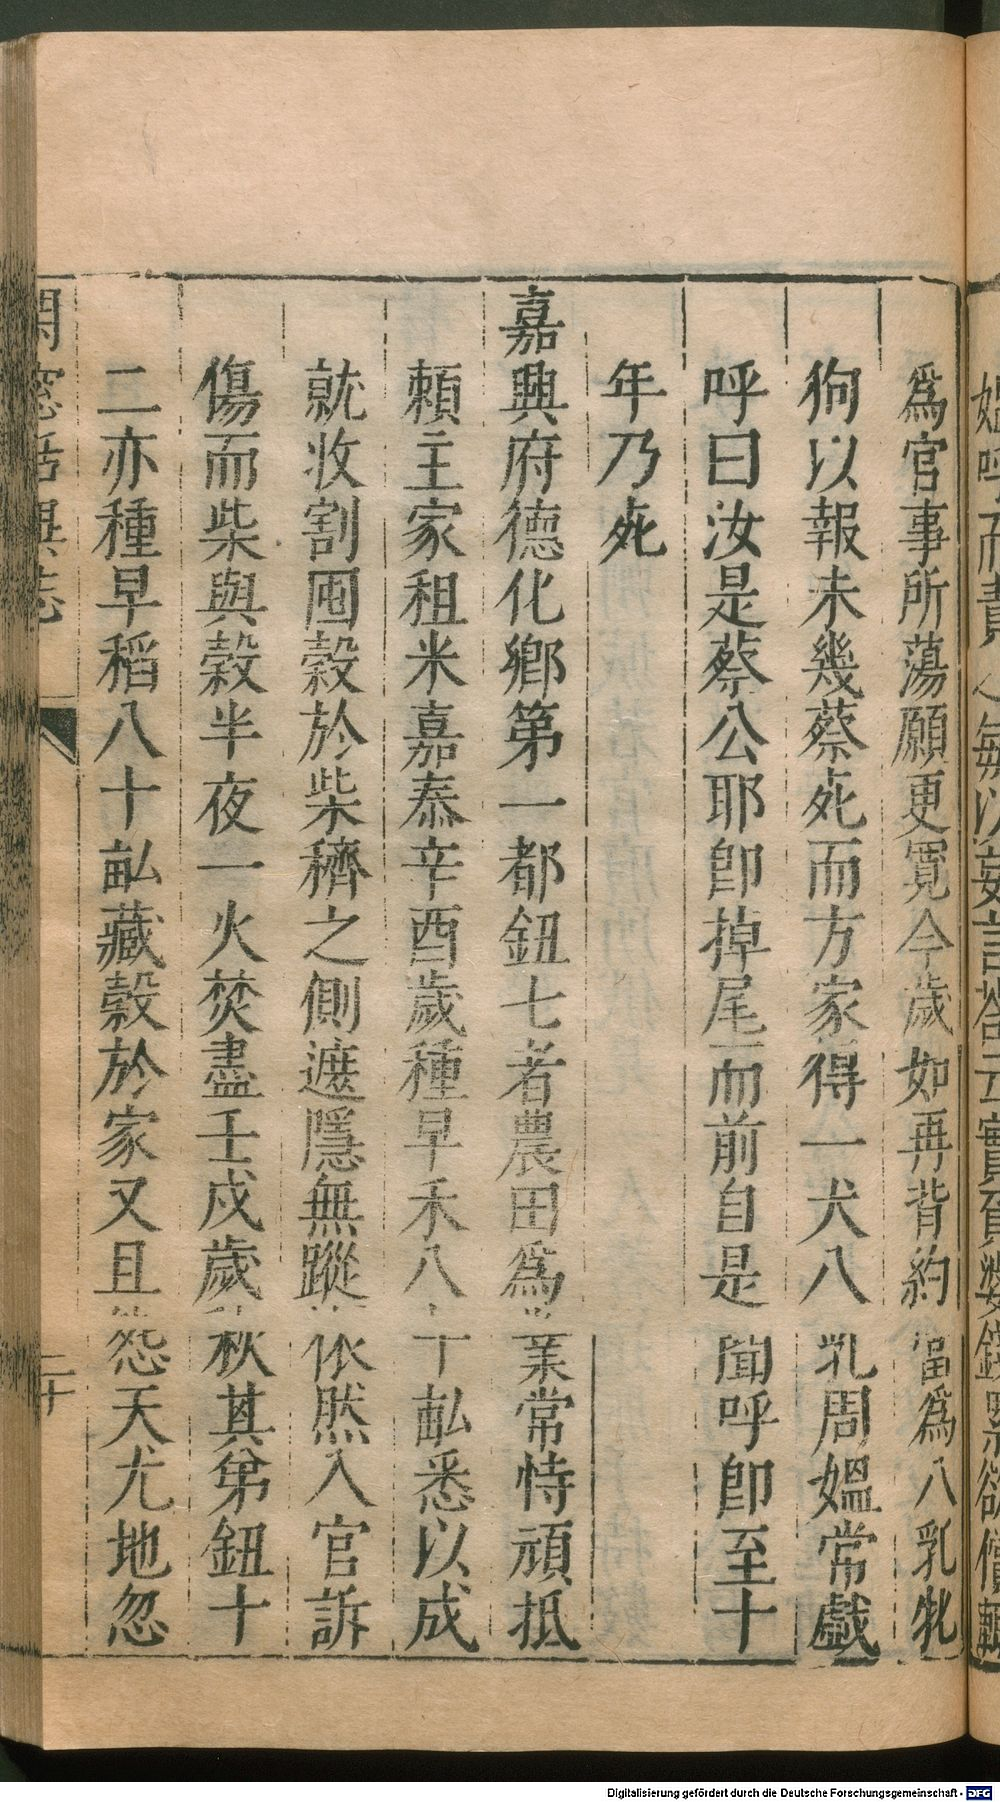 爲官事所蕩願更寬今歲如再背約當爲八乳牝
狗以報未幾蔡死而方家得一犬八乳周媼常戲
呼曰汝是蔡公耶卽掉尾而前自是聞呼卽至十
年乃死
嘉興府德化鄉第一都鈕七者農田爲業常恃頑抵
賴主家租米嘉泰辛酉歲種早禾八十畝悉以成
就收割囤穀於柴穧之側遮隱無蹤依然入官訴
傷而柴與穀半夜一火焚盡壬戌歲秋其弟鈕十
二亦種早稻八十畝藏穀於家又且怨天尤地忽
閑窓括異志
二十
Digitalisierung gefördert durch die Deutsche Forschungsgemeinschaft - DFG